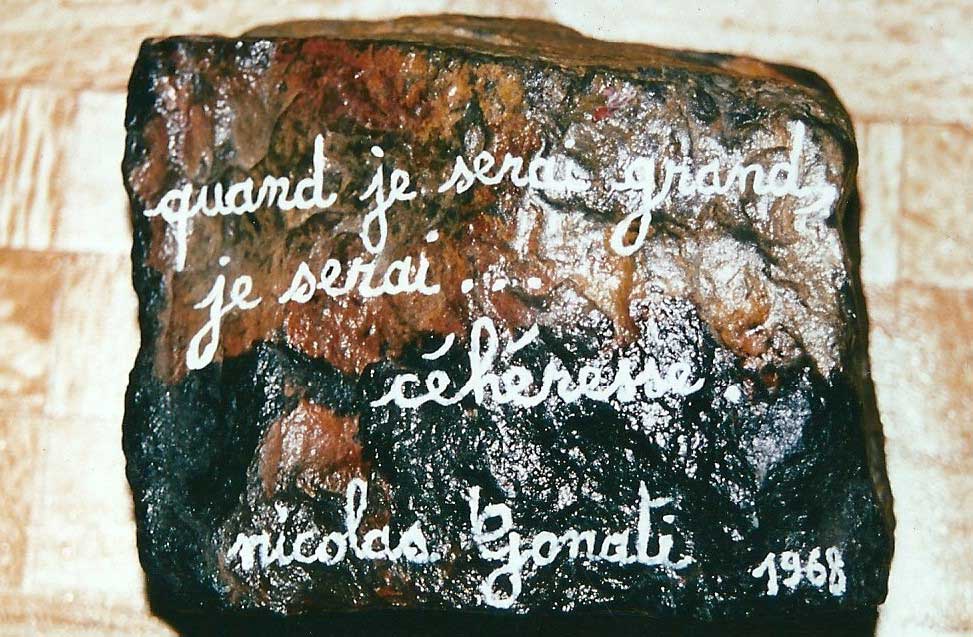 quand je serai grand,
je serai...
céhéresse.
nicolas Gonati
1968